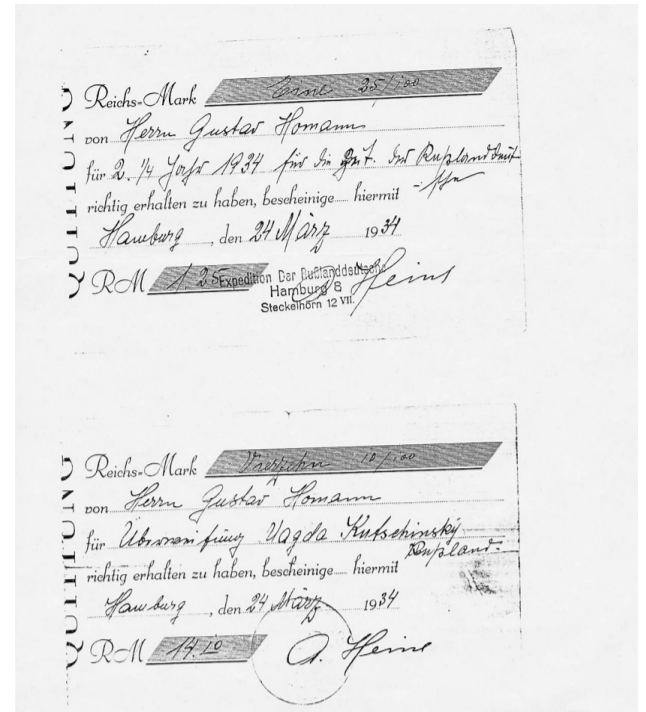 QUITTUNG
Reichs-Mark Eine 25/100
von Herrn Gustav Homann
für 2. 1/4 Jahr 1934 für die Zeit. Der Rußlanddeut-
sche
richtig erhalten zu haben, bescheinige hiermit
Hamburg, den 24 März 1934
RM 1.25
Expedition Der Rußlanddeutsche
Hamburg 8
Steckelhörn 12 VII.
A. Heins
QUITTUNG
Reichs-Mark Vierzehn 10/100
von Herrn Gustav Homann
für Überweisung Vagda Kutschinsky
Rußland.
richtig erhalten zu haben, bescheinige hiermit
Hamburg, den 24 März 1934
RM 14.10
A. Heins